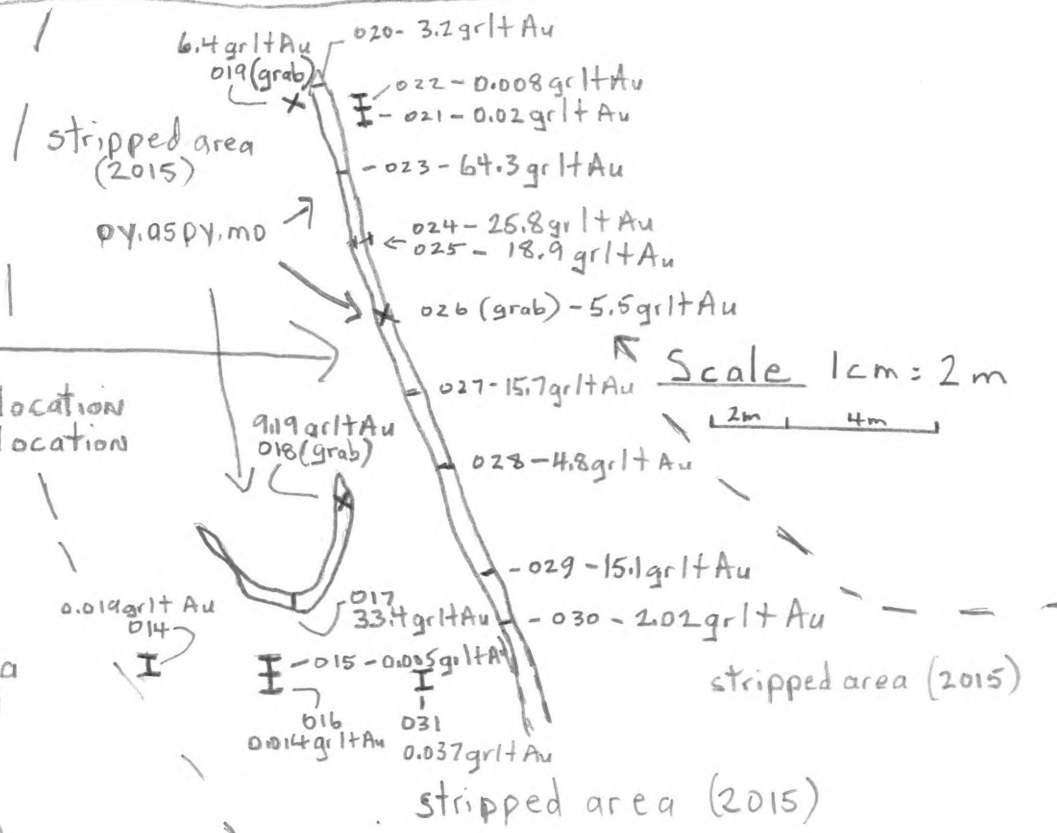 6.4 gr/t Au
019 (grab)
020- 3.2 gr/t Au
022 - 0.008 gr/t Au
- 021 - 0.02 gr/t Au
stripped area
(2015)
- 023 - 64.3 gr/t Au
py, aspy, mo
024 - 25.8 gr/t Au
025 - 18.9 gr/t Au
026 (grab) - 5.5 gr/t Au
Scale 1cm = 2m
2m 4m
027 - 15.7 gr/t Au
location
location
9.19 gr/t Au
018 (grab)
028 - 4.8 gr/t Au
- 029 - 15.1 gr/t Au
0.019 gr/t Au
014
017
33.4 gr/t Au
- 030 - 2.02 gr/t Au
a
- 015 - 0.005 gr/t A
stripped area (2015)
016
0.014 gr/t Au
031
0.037 gr/t Au
stripped area (2015)